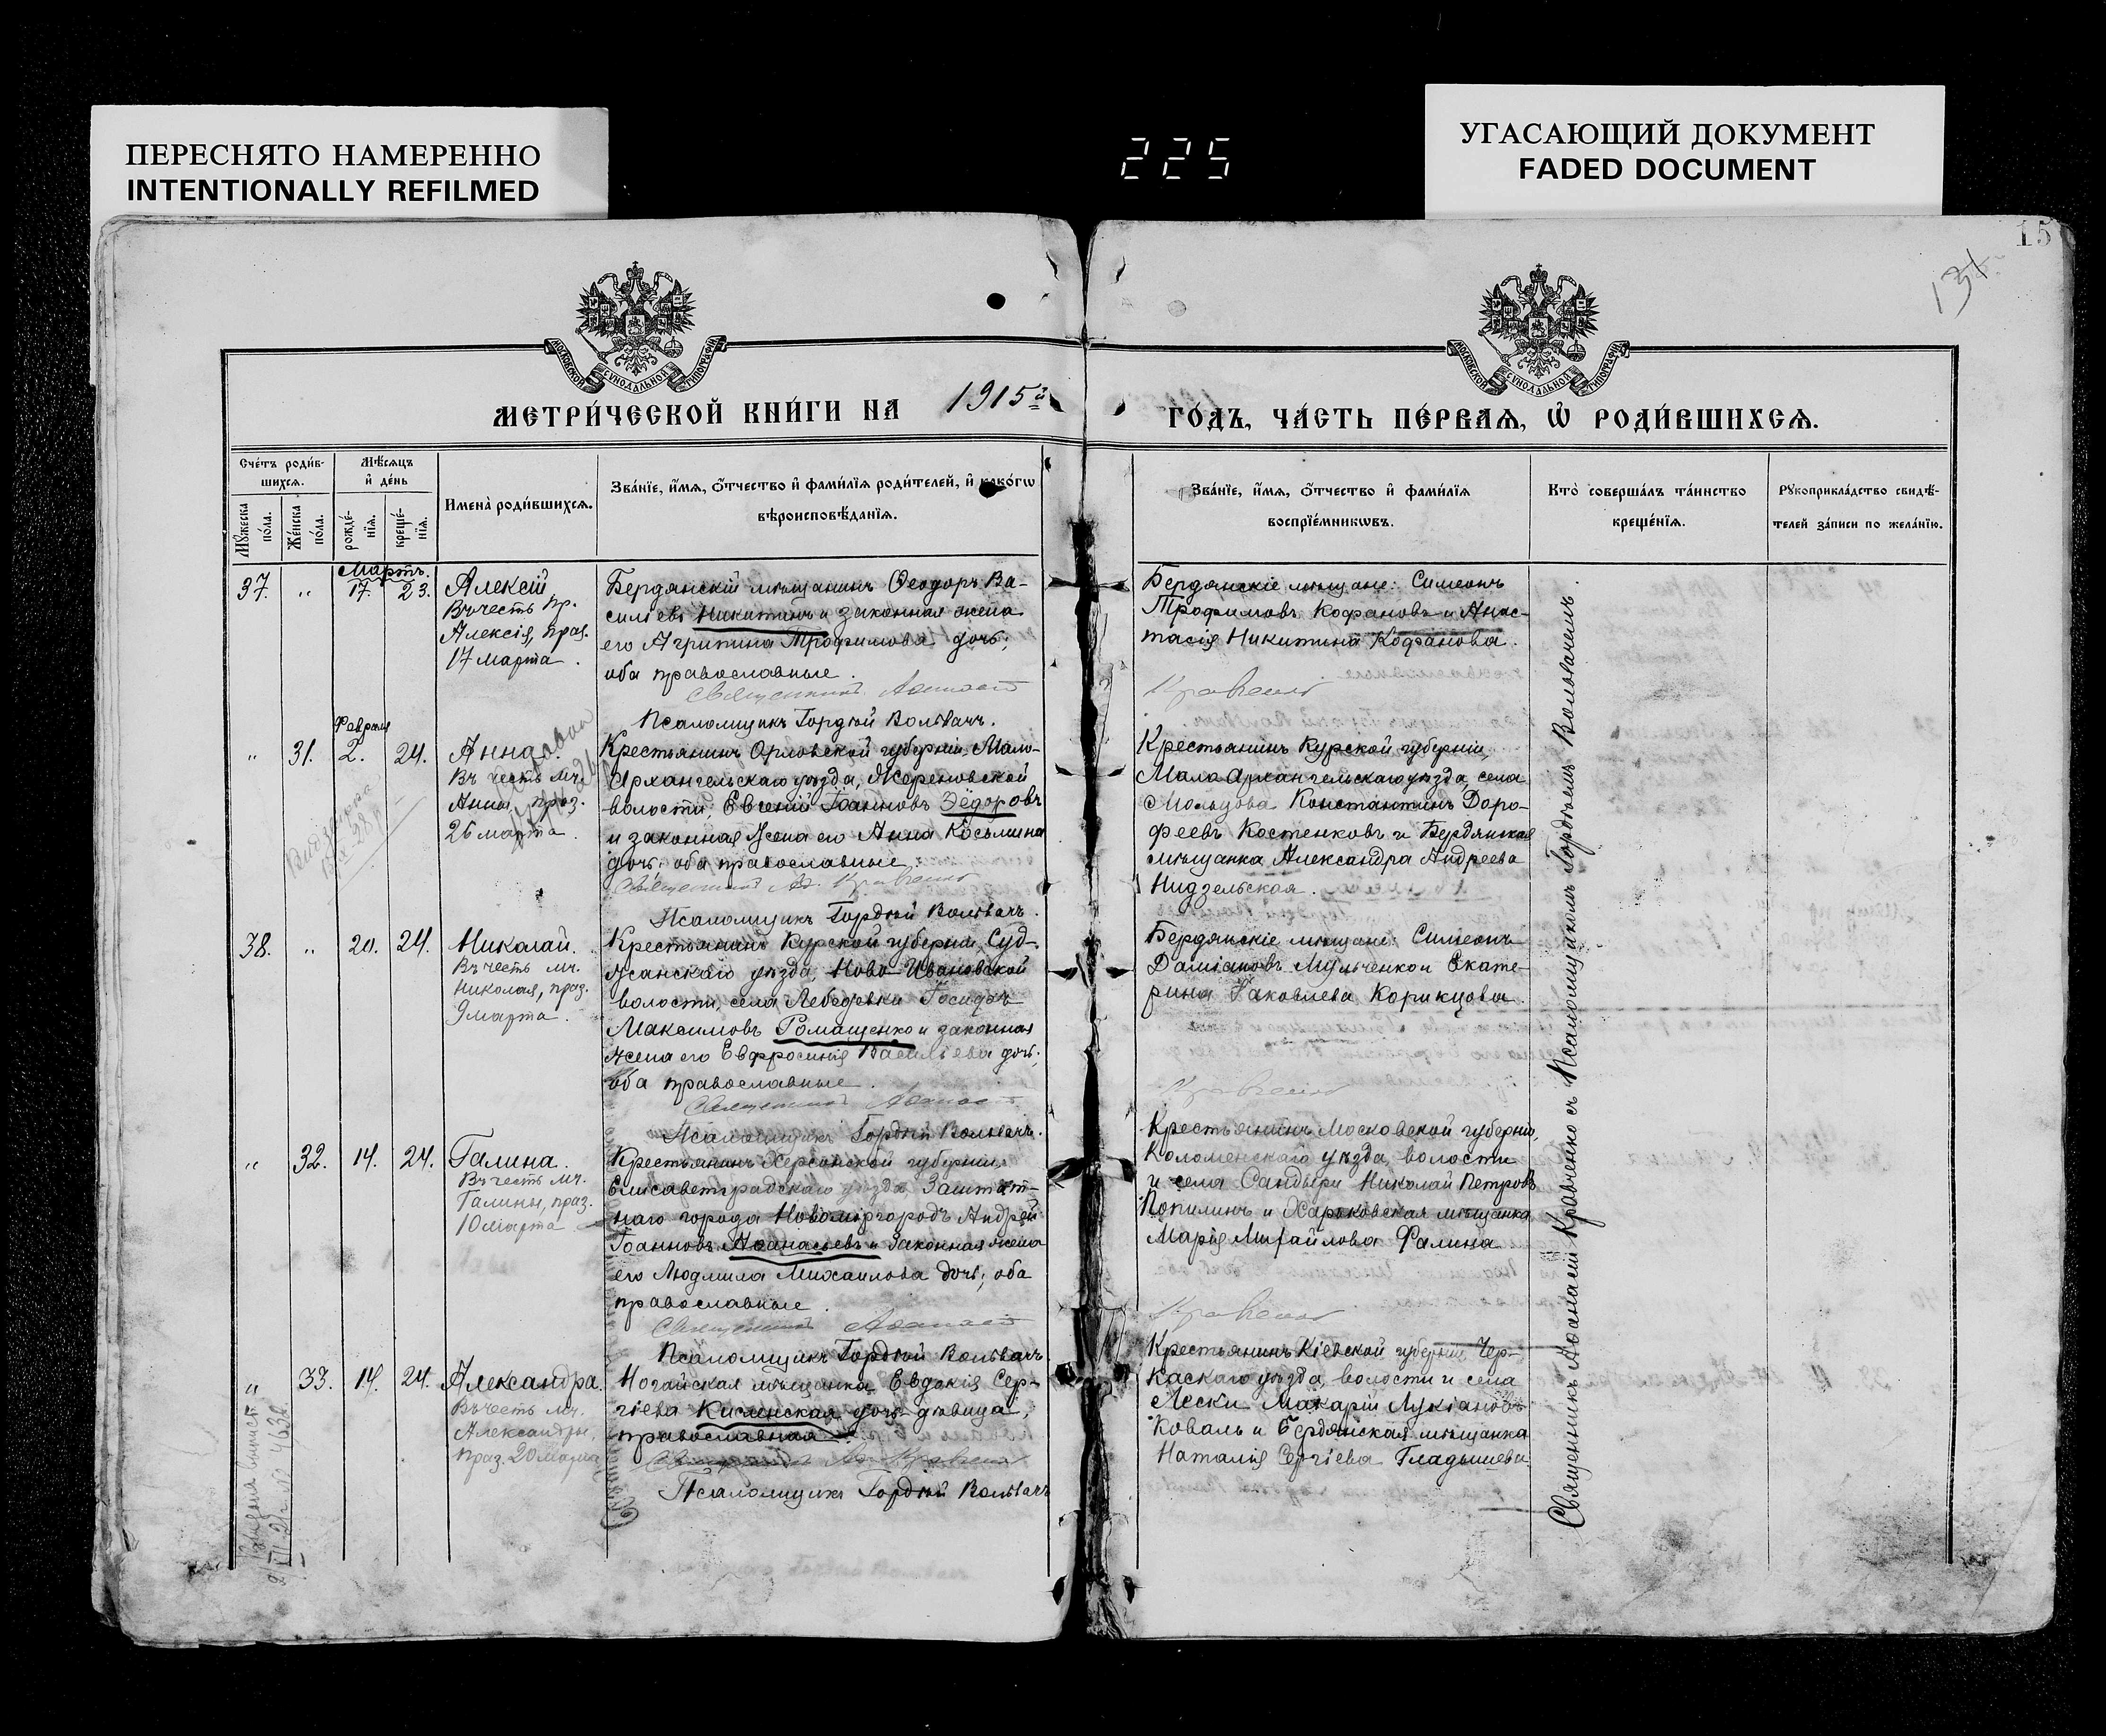 ПЕРЕСНЯТО НАМЕРЕННО
INTENTIONALLY REFILMED
225
УГАСАЮЩИЙ ДОКУМЕНТ
FADED DOCUMENT
15
МОСКОВСКОЙ СУНОДАЛЬНОЙ ТИПОГРАФІИ
МОСКОВСКОЙ СУНОДАЛЬНОЙ ТИПОГРАФІИ
МЕТРИ́ЧЕСКОЙ КНИ́ГИ НА 1915й
ГО́ДЪ, ЧА́СТЬ ПЕ́РВАЯ, Ѿ РОДИ́ВШИХСЯ.
Сче́тъ роди́в-
шихся.
Мѣсяцъ
и де́нь
Мꙋжеска
по́ла.
Же́нска
по́ла.
рожде́-
нїя.
креще́-
нїя.
Имена̀ роди́вшихся.
Зва́нїе, и́мя, о́тчество и фами́лїя роди́телей, и како́гѡ
вѣроисповѣ́данїя.
Зва́нїе, и́мя, о́тчество и фами́лїя
воспрїе́мникѡвъ.
Кто̀ соверша́лъ та́инство
креще́нїя.
Рꙋкоприкла́дство свидѣ́-
телей за́писи по жела́нїю.
Мартъ.
37. " 17. 23. Алексій
Въ честь пр.
Алексія, праз.
17 марта.
Бердянскій мѣщанинъ Ѳеодоръ Ва-
сильевъ Никитинъ и законная жена
его Агрипина Трофимова дочь;
оба православные.
Священникъ Аѳанасій Кравченко
Псаломщикъ Гордѣй Воловачъ.
Бердянскіе мѣщане: Симеонъ
Трофимовъ Кофановъ и Анас-
тасія Никитина Кофанова.
Февраля
" 31. 2. 24. Анна.
Въ честь мч.
Анны праз.
26 марта.
Крестьянинъ Орловской губерніи, Мало-
Архангельскаго уѣзда,
волости, Евгеній Іоанновъ Ѳёдоровъ
и законная жена его Анна Косьмина
дочь; оба православные.
Священникъ Аѳ. Кравченко
Псаломщикъ Гордѣй Воловачъ.
Крестьянинъ Курской губерніи,
Мало Архангельскаго уѣзда, села
Константинъ Доро-
феевъ Костенковъ и Бердянская
мѣщанка Александра Андреева
Нидзельская.
38. " 20. 24. Николай.
Въ честь мч.
Николая, праз.
9 марта.
Крестьянинъ Курской губерніи, Суд-
жанскаго уѣзда, Ново-Ивановской
волости, села Лебедевки
Максимовъ Ромащенко и законная
жена его Евфросинія Васильева дочь;
оба православные.
Священникъ Аѳанасій Кравченко
Псаломщикъ Гордѣй Воловачъ.
Бердянскіе мѣщане: Симеонъ
Даміановъ Мульченко и Екате-
рина Яковлева Корикцова.
" 32. 14. 24. Галина.
Въ честь мч.
Галины, праз.
10 марта
Крестьянинъ Херсонской губерніи,
Елисаветградскаго уѣзда, Заштат-
наго города Новомиргородъ Андрей
Іоанновъ Аѳанасьевъ и законная жена
его Людмила Михаилова дочь; оба
православные.
Священникъ Аѳанасій Кравченко
Псаломщикъ Гордѣй Воловачъ
Крестьянинъ Московской губерніи,
Коломенскаго уѣзда, волости
и села Сандыри Николай Петровъ
Попилинъ и Харьковская мѣщанка
Марія Михайлова Фалина.
" 33. 14. 24. Александра.
Въ честь мч.
Александры,
праз. 20 марта
Ногайская мѣщанка Евдокія Сер-
гіева Кисленская дочь-дѣвица,
православная.
Священникъ Аѳ. Кравченко
Псаломщикъ Гордѣй Воловачъ
Крестьянинъ Кіевской губерніи, Чер-
каскаго уѣзда, волости и села
Лески Макарій Лукіановъ
Коваль и Бердянская мѣщанка
Наталія Сергіева Гладышева.
Священникъ Аѳанасій Кравченко съ Псаломщикомъ Гордѣемъ Воловачемъ.